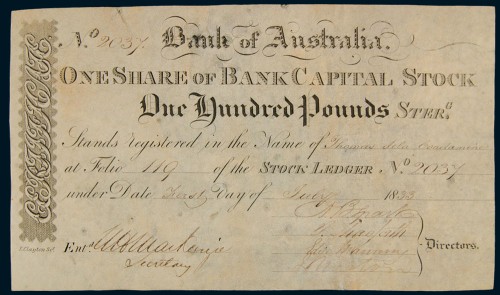 No 2037. Bank of Australia.
ONE SHARE OF BANK CAPITAL STOCK
One Hundred Pounds STERG.
Stands registered in the Name of Thomas
at Folio 119 of the STOCK LEDGER No 2037
under Date First Day of July 1833
CERTIFICATE
Entd. Mackenzie
Secretary
Directors.